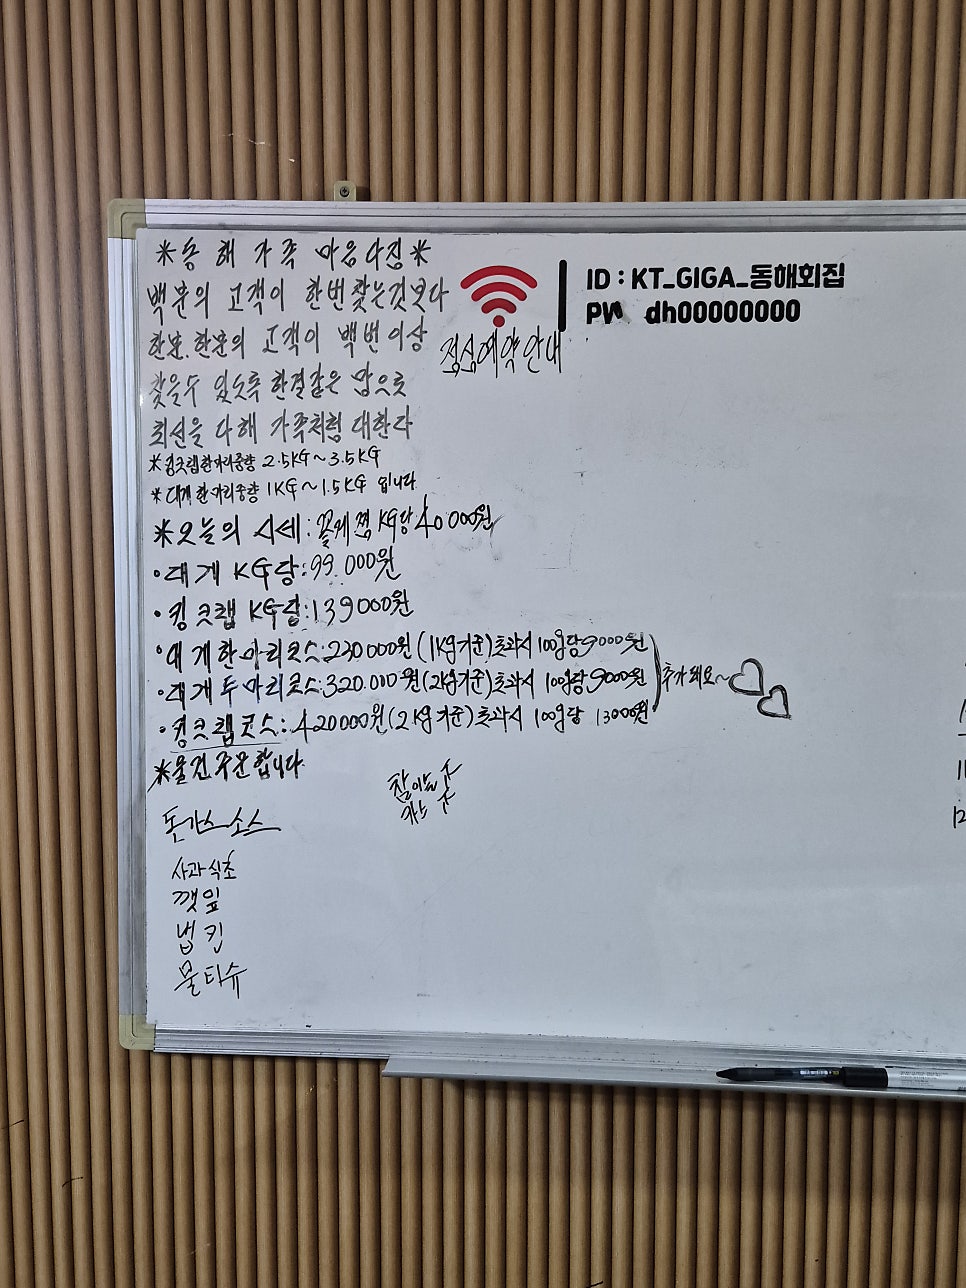 *동해 가족 마음다짐*
백분의 고객이 한번 찾는것보다
한분.한분의 고객이 백번 이상
찾을수 있도록 한결같은 맘으로
최선을 다해 가족처럼 대한다
*킹크랩한마리중량 2.5KG~3.5KG
*대게한마리중량 1KG~1.5KG 입니다
*오늘의 시세:꽃게찜 KG당 40000원
•대게 KG당:99.000원
•킹크랩 KG당:139000원
•대게한마리코스:230000원(1kg기준)초과시 100g당9000원
•대게두마리코스:320.000원(2kg기준)초과시 100g당9000원
•킹크랩코스:420000원(2kg기준)초과시 100g당 13000원
추가돼요~
*물건주문합니다
돈까스 소스
사과식초
깻잎
냅킨
물티슈
ID : KT_GIGA_동해회집
PW dh00000000
점심예약안내
참이슬
카스